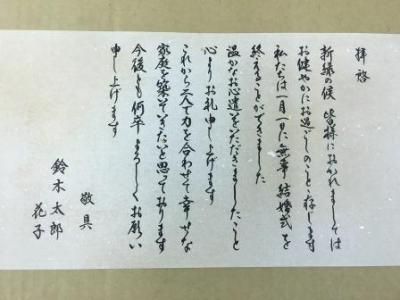 拝啓
新緑の候 皆様におかれましては
お健やかにお過ごしのことと存じます
私たちは一月一日に無事 結婚式を
終えることができました
温かなお心遣いをいただきましたこと
心よりお礼申し上げます
これから二人で力を合わせて幸せな
家庭を築いていきたいと思っております
今後とも何卒よろしくお願い
申し上げます
敬具
鈴木太郎
花子